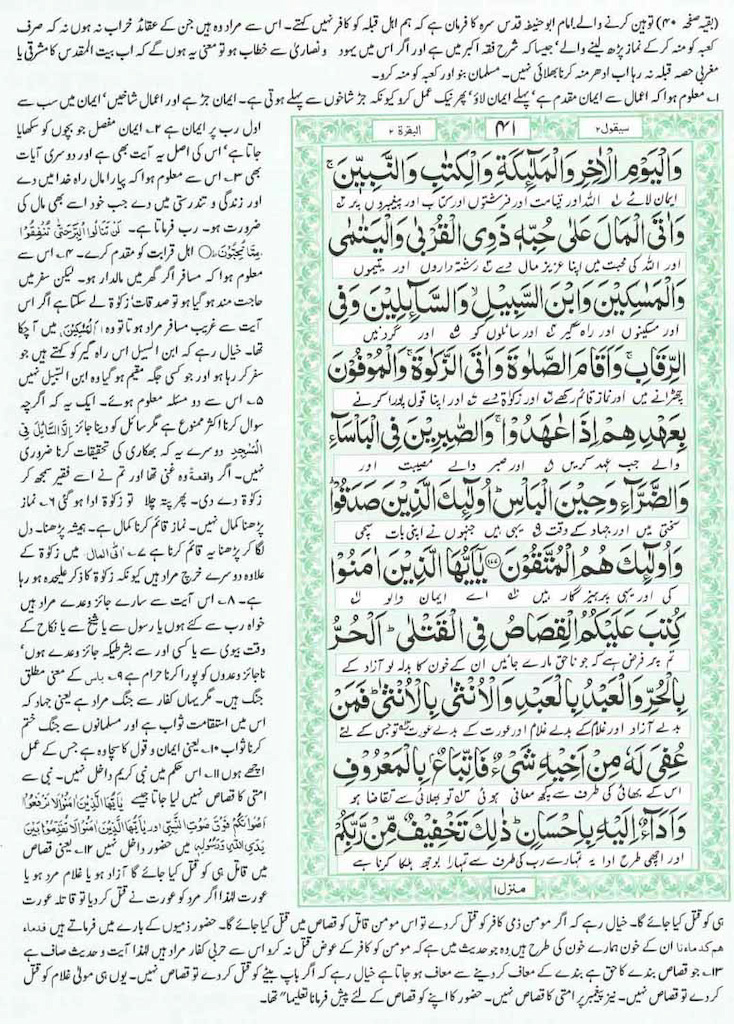 (بقیہ صفحہ ۴۰) توہین کرنے والے۔ امام ابو حنیفہ قدس سرہ کا فرمان ہے کہ ہم اہل قبلہ کو کافر نہیں کہتے۔ اس سے مراد وہ ہیں جن کے عقائد خراب نہ ہوں نہ کہ صرف
کعبہ کو منہ کر کے نماز پڑھ لینے والے، جیسا کہ شرح فقہ اکبر میں ہے اور اگر اس میں یہود و نصاریٰ سے خطاب ہو تو معنی یہ ہوں گے کہ اب بیت المقدس کا مشرقی یا
مغربی حصہ قبلہ نہ رہا اب ادھر منہ کرنا بھلائی نہیں۔ مسلمان بنو اور کعبہ کو منہ کرو۔
۱۔ معلوم ہوا کہ اعمال سے ایمان مقدم ہے، پہلے ایمان لاؤ، پھر نیک عمل کرو کیونکہ جڑ شاخوں سے پہلے ہوتی ہے۔ ایمان جڑ ہے اور اعمال شاخیں، ایمان میں سب سے
اول رب پر ایمان ہے ۲۔ ایمان مفصل جو بچوں کو سکھایا
جاتا ہے، اس کی اصل یہ آیت بھی ہے اور دوسری آیات
بھی ۳۔ اس سے معلوم ہوا کہ پیارا مال راہ خدا میں دے
اور زندگی و تندرستی میں دے جب خود اسے بھی مال کی
ضرورت ہو۔ رب فرماتا ہے۔ لَنْ تَنَالُوا الْبِرَّ حَتّٰى تُنْفِقُوْا
مِمَّا تُحِبُّوْنَ ○ اہل قرابت کو مقدم کرے۔ ۴۔ اس سے
معلوم ہوا کہ مسافر اگر گھر میں مالدار ہو۔ لیکن سفر میں
حاجت مند ہو گیا ہو تو صدقات زکوٰۃ لے سکتا ہے اگر اس
آیت سے غریب مسافر مراد ہوتا تو وہ اَلْمَسٰكِيْنَ میں آ چکا
تھا۔ خیال رہے کہ ابن السبیل اس راہ گیر کو کہتے ہیں جو
سفر کر رہا ہو اور جو کسی جگہ مقیم ہو گیا وہ ابن السبیل نہیں
۵۔ اس سے دو مسئلہ معلوم ہوئے۔ ایک یہ کہ اگرچہ
سوال کرنا اکثر ممنوع ہے مگر سائل کو دینا جائز
دوسرے یہ کہ بھکاری کی تحقیقات کرنا ضروری
نہیں۔ اگر واقعۃً وہ غنی تھا اور تم نے اسے فقیر سمجھ کر
زکوٰۃ دے دی۔ پھر پتہ چلا تو زکوٰۃ ادا ہو گئی ۶۔ نماز
پڑھنا کمال نہیں۔ نماز قائم کرنا کمال ہے۔ ہمیشہ پڑھنا۔ دل
لگا کر پڑھنا یہ قائم کرنا ہے ۷۔ اٰتَى الْمَالَ میں زکوٰۃ کے
علاوہ دوسرے خرچ مراد ہیں کیونکہ زکوٰۃ کا ذکر علیحدہ ہو رہا
ہے۔ ۸۔ اس آیت سے سارے جائز وعدے مراد ہیں
خواہ رب سے کئے ہوں یا رسول سے یا شیخ سے یا نکاح کے
وقت بیوی سے یا کسی اور سے بشرطیکہ جائز وعدے ہوں،
ناجائز وعدوں کو پورا کرنا حرام ہے ۹۔ باس کے معنی مطلق
جنگ ہیں۔ مگر یہاں کفار سے جنگ مراد ہے یعنی جہاد کہ
اس میں استقامت ثواب ہے اور مسلمانوں سے جنگ ختم
کرنا ثواب ۱۰۔ یعنی ایمان و قول کا سچا وہ ہے جس کے عمل
اچھے ہوں ۱۱۔ اس حکم میں نبی کریم داخل نہیں۔ نبی سے
امتی کا قصاص نہیں لیا جاتا جیسے يٰٓاَيُّهَا الَّذِيْنَ اٰمَنُوْا لَا تَرْفَعُوْٓا
اَصْوَاتَكُمْ فَوْقَ صَوْتِ النَّبِيِّ اور يٰٓاَيُّهَا الَّذِيْنَ اٰمَنُوْا لَا تُقَدِّمُوْا بَيْنَ
يَدَىِ اللّٰهِ وَرَسُوْلِهٖ میں حضور داخل نہیں ۱۲۔ یعنی قصاص
میں قاتل ہی کو قتل کیا جائے گا آزاد ہو یا غلام مرد ہو یا
عورت لہٰذا اگر مرد کو عورت نے قتل کر دیا تو قاتلہ عورت
سیقول ۲
۴۱
البقرۃ ۲
وَالْيَوْمِ الْاٰخِرِ وَالْمَلٰٓئِكَةِ وَالْكِتٰبِ وَالنَّبِيّٖنَ ۚ
ایمان لائے اللہ اور قیامت اور فرشتوں اور کتاب اور پیغمبروں پر
وَاٰتَى الْمَالَ عَلٰى حُبِّهٖ ذَوِى الْقُرْبٰى وَالْيَتٰمٰى
اور اللہ کی محبت میں اپنا عزیز مال دے رشتہ داروں اور یتیموں
وَالْمَسٰكِيْنَ وَابْنَ السَّبِيْلِ ۙ وَالسَّآئِلِيْنَ وَفِى
اور مسکینوں اور راہ گیر اور سائلوں کو اور گردنیں
الرِّقَابِ ۚ وَاَقَامَ الصَّلٰوةَ وَاٰتَى الزَّكٰوةَ ۚ وَالْمُوْفُوْنَ
چھڑانے میں اور نماز قائم رکھے اور زکوٰۃ دے اور اپنا قول پورا کرنے
بِعَهْدِهِمْ اِذَا عٰهَدُوْا ۚ وَالصّٰبِرِيْنَ فِى الْبَاْسَآءِ
والے جب عہد کریں اور صبر والے مصیبت اور
وَالضَّرَّآءِ وَحِيْنَ الْبَاْسِ ؕ اُولٰٓئِكَ الَّذِيْنَ صَدَقُوْا ؕ
سختی میں اور جہاد کے وقت یہی ہیں جنہوں نے اپنی بات سچی
وَاُولٰٓئِكَ هُمُ الْمُتَّقُوْنَ ۝۱۷۷ يٰٓاَيُّهَا الَّذِيْنَ اٰمَنُوْا
کی اور یہی پرہیزگار ہیں اے ایمان والو
كُتِبَ عَلَيْكُمُ الْقِصَاصُ فِى الْقَتْلٰى ؕ اَلْحُرُّ
تم پر فرض ہے کہ جو ناحق مارے جائیں ان کے خون کا بدلہ لو آزاد کے
بِالْحُرِّ وَالْعَبْدُ بِالْعَبْدِ وَالْاُنْثٰى بِالْاُنْثٰى ؕ فَمَنْ
بدلے آزاد اور غلام کے بدلے غلام اور عورت کے بدلے عورت تو جس کے لئے
عُفِىَ لَهٗ مِنْ اَخِيْهِ شَىْءٌ فَاتِّبَاعٌۢ بِالْمَعْرُوْفِ
اس کے بھائی کی طرف سے کچھ معافی ہوئی تو بھلائی سے تقاضا ہو
وَاَدَآءٌ اِلَيْهِ بِاِحْسَانٍ ؕ ذٰلِكَ تَخْفِيْفٌ مِّنْ رَّبِّكُمْ
اور اچھی طرح ادا یہ تمہارے رب کی طرف سے تمہارا بوجھ ہلکا کرنا ہے
منزل ۱
ہی کو قتل کیا جائے گا۔ خیال رہے کہ اگر مومن ذمی کافر کو قتل کر دے تو اس مومن قاتل کو قصاص میں قتل کیا جائے گا۔ حضور ذمیوں کے بارے میں فرماتے ہیں دماءهم
كدمائنا ان کے خون ہمارے خون کی طرح ہیں وہ جو حدیث میں ہے کہ مومن کو کافر کے عوض قتل نہ کرو اس سے حربی کفار مراد ہیں لہٰذا آیت و حدیث صاف ہے
۱۳۔ جو قصاص بندے کا حق ہے بندے کے معاف کر دینے سے معاف ہو جاتا ہے خیال رہے کہ اگر باپ بیٹے کو قتل کر دے تو قصاص نہیں۔ یوں ہی مولیٰ غلام کو قتل
کر دے تو قصاص نہیں۔ نیز پیغمبر پر امتی کا قصاص نہیں۔ حضور کا اپنے کو قصاص کے لئے پیش فرمانا تعلیماً تھا۔